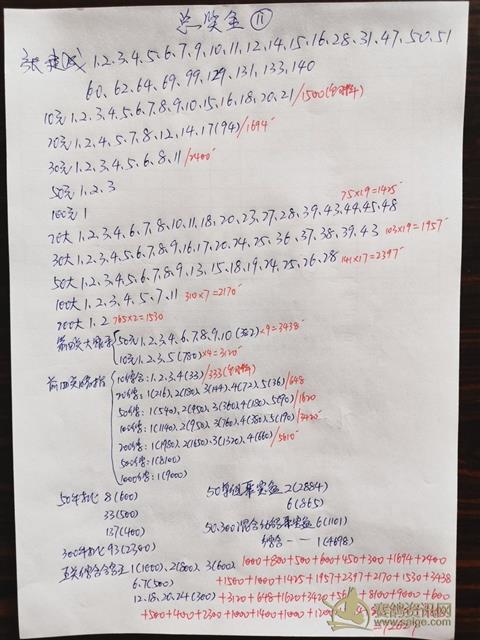 总奖金 ⑪
张建成 1、2、3、4、5、6、7、9、10、11、12、14、15、16、28、31、47、50、51
60、62、64、69、99、129、131、133、140
10元 1、2、3、4、5、6、7、8、9、10、15、16、18、20、21/1500
20元 1、2、4、5、7、8、12、14、17(94)/1694
30元 1、2、3、4、5、6、8、11/2400
50元 1、2、3
100元 1
75×19=1425
20大 1、2、3、4、6、7、8、10、11、18、20、23、27、28、39、43、44、45、48
30大 1、2、3、4、5、6、7、8、9、16、17、20、24、25、36、37、38、39、43 103×19=1957
50大 1、2、3、4、5、6、7、8、9、13、15、18、19、24、25、26、28 141×17=2397
100大 1、2、3、4、5、7、11 310×7=2170
200大 1、2 765×2=1530
50元 1、2、3、4、6、7、8、9、10 ×9=3438
10元 1、2、3、5(780)×4=3120
10组合:1、2、3、4(33)/333
20组合:1(216)、2(180)、3(144)、4(72)、5(36)/648
50组合:1(540)、2(450)、3(360)、4(180)、5(90)/1620
100组合:1(1140)、2(950)、3(760)、4(380)、5(190)/3420
200组合:1(1980)、2(1650)、3(1320)、4(660)/5610
500组合:1(8100)
1000组合:1(9000)
50单 8(600)
33(500)
137(400)
300单 93(2300)
50单 2(2884)
6(865)
50.300混合 6(1101)
综合一一 1(4698)
1(1000)、2(800)、3(600)
6.7(500)
12.18.20.24(300)
1000+800+500+600+450+300+1694+2400
+1500+1000+1425+1957+2397+2170+1530+3438
+3120+648+1620+3420+5610+8100+9000+600
+500+400+2300+1000+1400+1000
赛鸽资讯网
www.saige.com